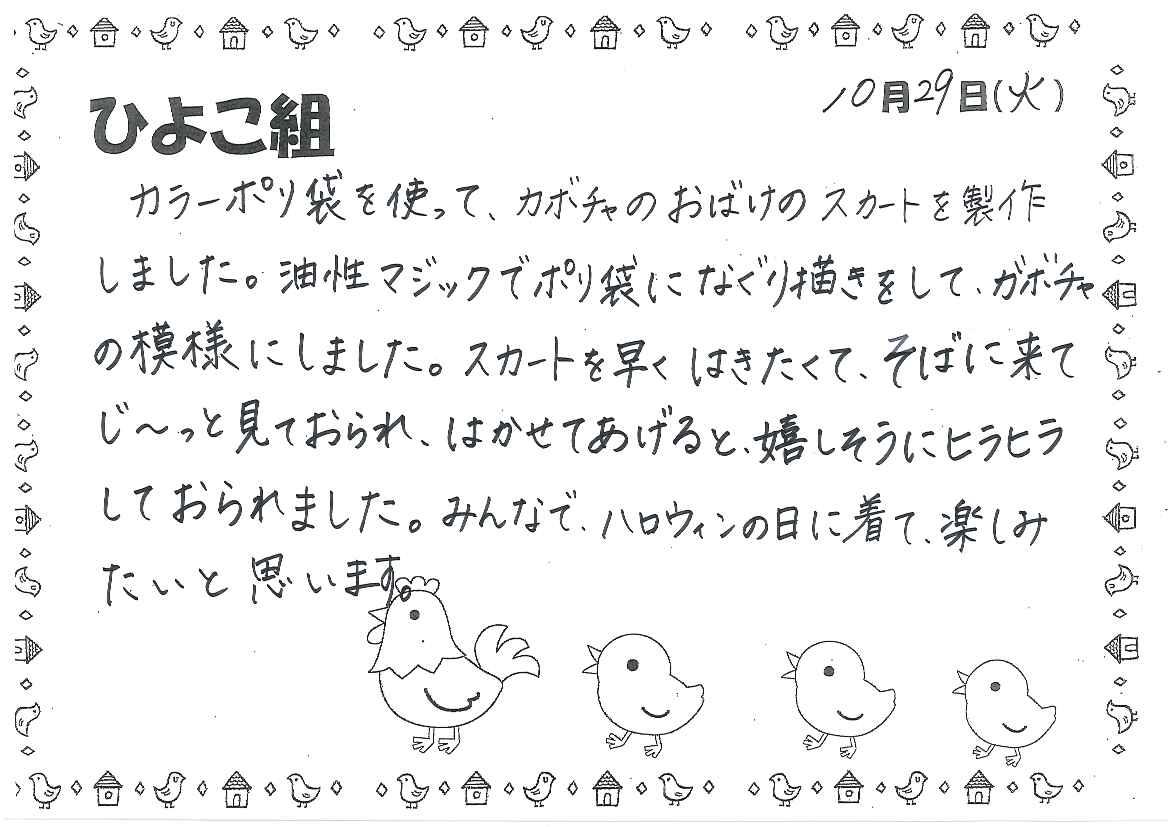 10月29日(火)
ひよこ組
カラーポリ袋を使って、カボチャのおばけのスカートを製作
しました。油性マジックでポリ袋になぐり描きをして、カボチャ
の模様にしました。スカートを早くはきたくて、そばに来て
じ〜っと見ておられ、はかせてあげると、嬉しそうにヒラヒラ
しておられました。みんなで、ハロウィンの日に着て、楽しみ
たいと思います。